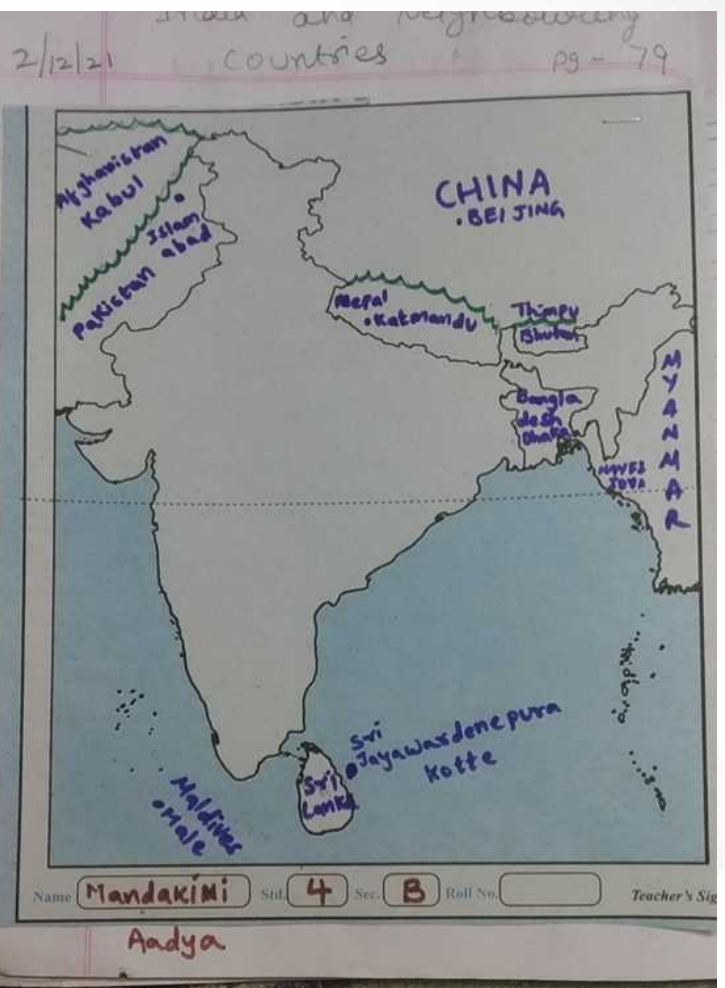 India and Neighbouring
2/12/21 Countries pg - 79
Afghanistan
Kabul
CHINA
BEIJING
Islam
abad
Pakistan
Nepal
Katmandu
Thimpu
Bhutan
Bangla
desh
Dhaka
MYANMAR
Sri
Jayawardenepura
Kotte
Sri
Lanka
Maldives
Male
Name Mandakini Std. 4 Sec. B Roll No. Teacher's Sig
Aadya